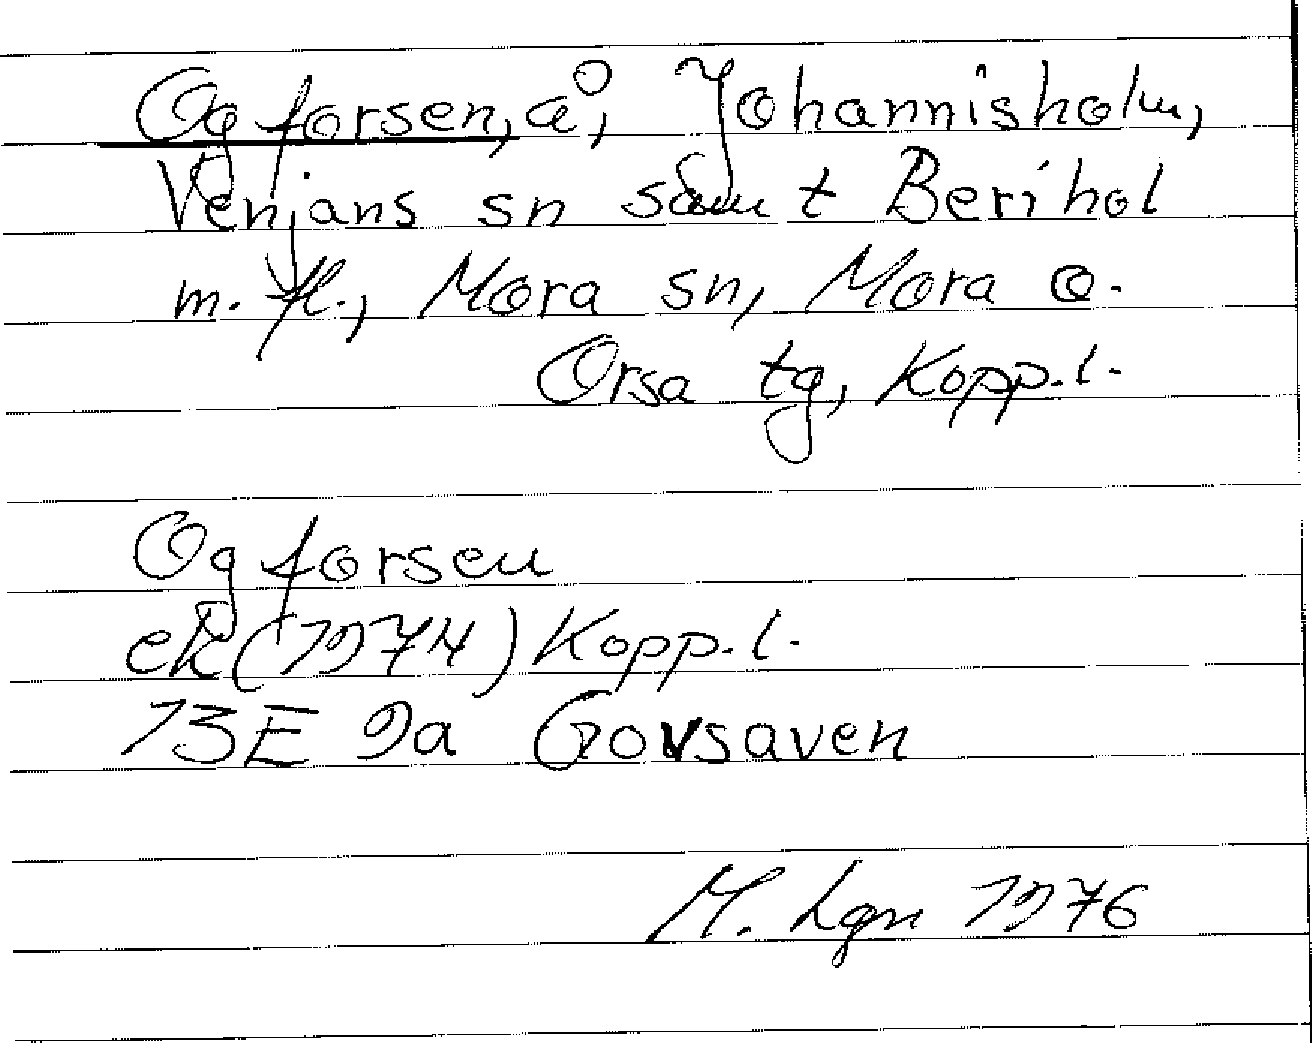 Ogforsen, å, Johannisholm,
Venjans sn samt Berihol
m. fl., Mora sn, Mora o.
Orsa tg, Kopp. l.
Ogforsen
ek (1974) Kopp. l.
13E 9a Govsaven
M. Lgn 1976